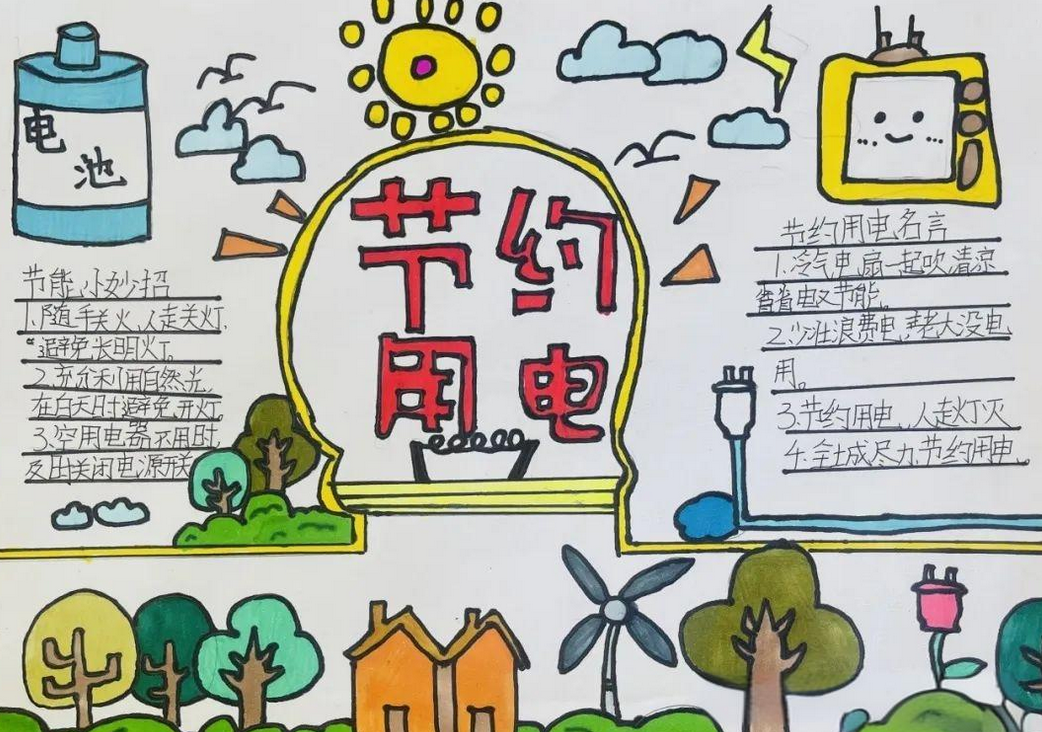 电
池
节约
用电
节能小妙招
1.随手关火,人走关灯,
避免长明灯。
2.充分利用自然光,
在白天时避免开灯。
3.空用电器不用时,
及时关闭电源开关
节约用电名言
1.冷气电扇一起吹,清凉
省电又节能。
2.少壮浪费电,老大没电
用。
3.节约用电,人走灯灭
4.全城尽力,节约用电。